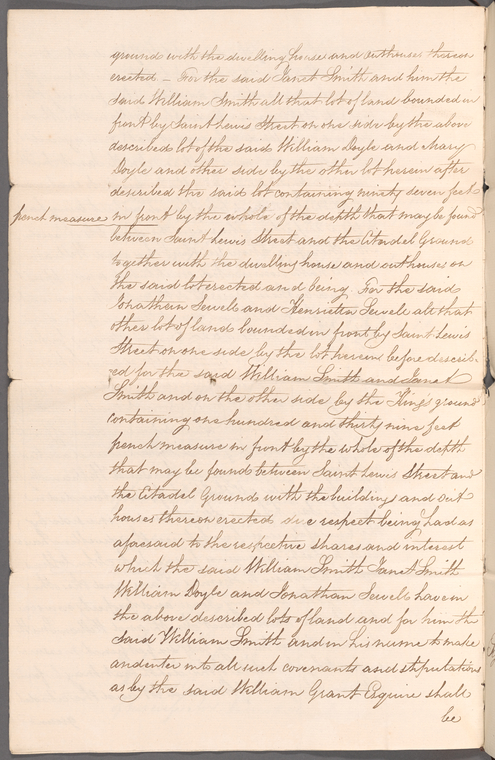 ground with the dwelling house and outhouses thereon
erected – For the said Janet Smith and him the
said William Smith all that lot of land bounded in
front by Saint Lewis Street on one side by the above
described lot of the said William Doyle and Mary
Doyle and other side by the other lot herein after
described the said lot containing ninety seven feet
french measure in front by the whole of the depth that may be found
between Saint Lewis Street and the Citadel Ground
together with the dwelling house and outhouses on
the said lot erected and being For the said
Jonathan Sewels and Henrietta Sewels all that
other lot of land bounded in front by Saint Lewis
Street on one side by the lot herein before describ
ed for the said William Smith and Janet
Smith and on the other side by the Kings ground
containing one hundred and thirty nine feet
french measure in front by the whole of the depth
that may be found between Saint Lewis Street and
the Citadel Ground with the buildings and out
houses thereon erected due respect being had as
aforesaid to the respective shares and interest
which the said William Smith Janet Smith
William Doyle and Jonathan Sewels have in
the above described lots of land and for him the
said William Smith and in his name to make
and enter into all such covenants and stipulations
as by the said William Grant Esquire shall
be